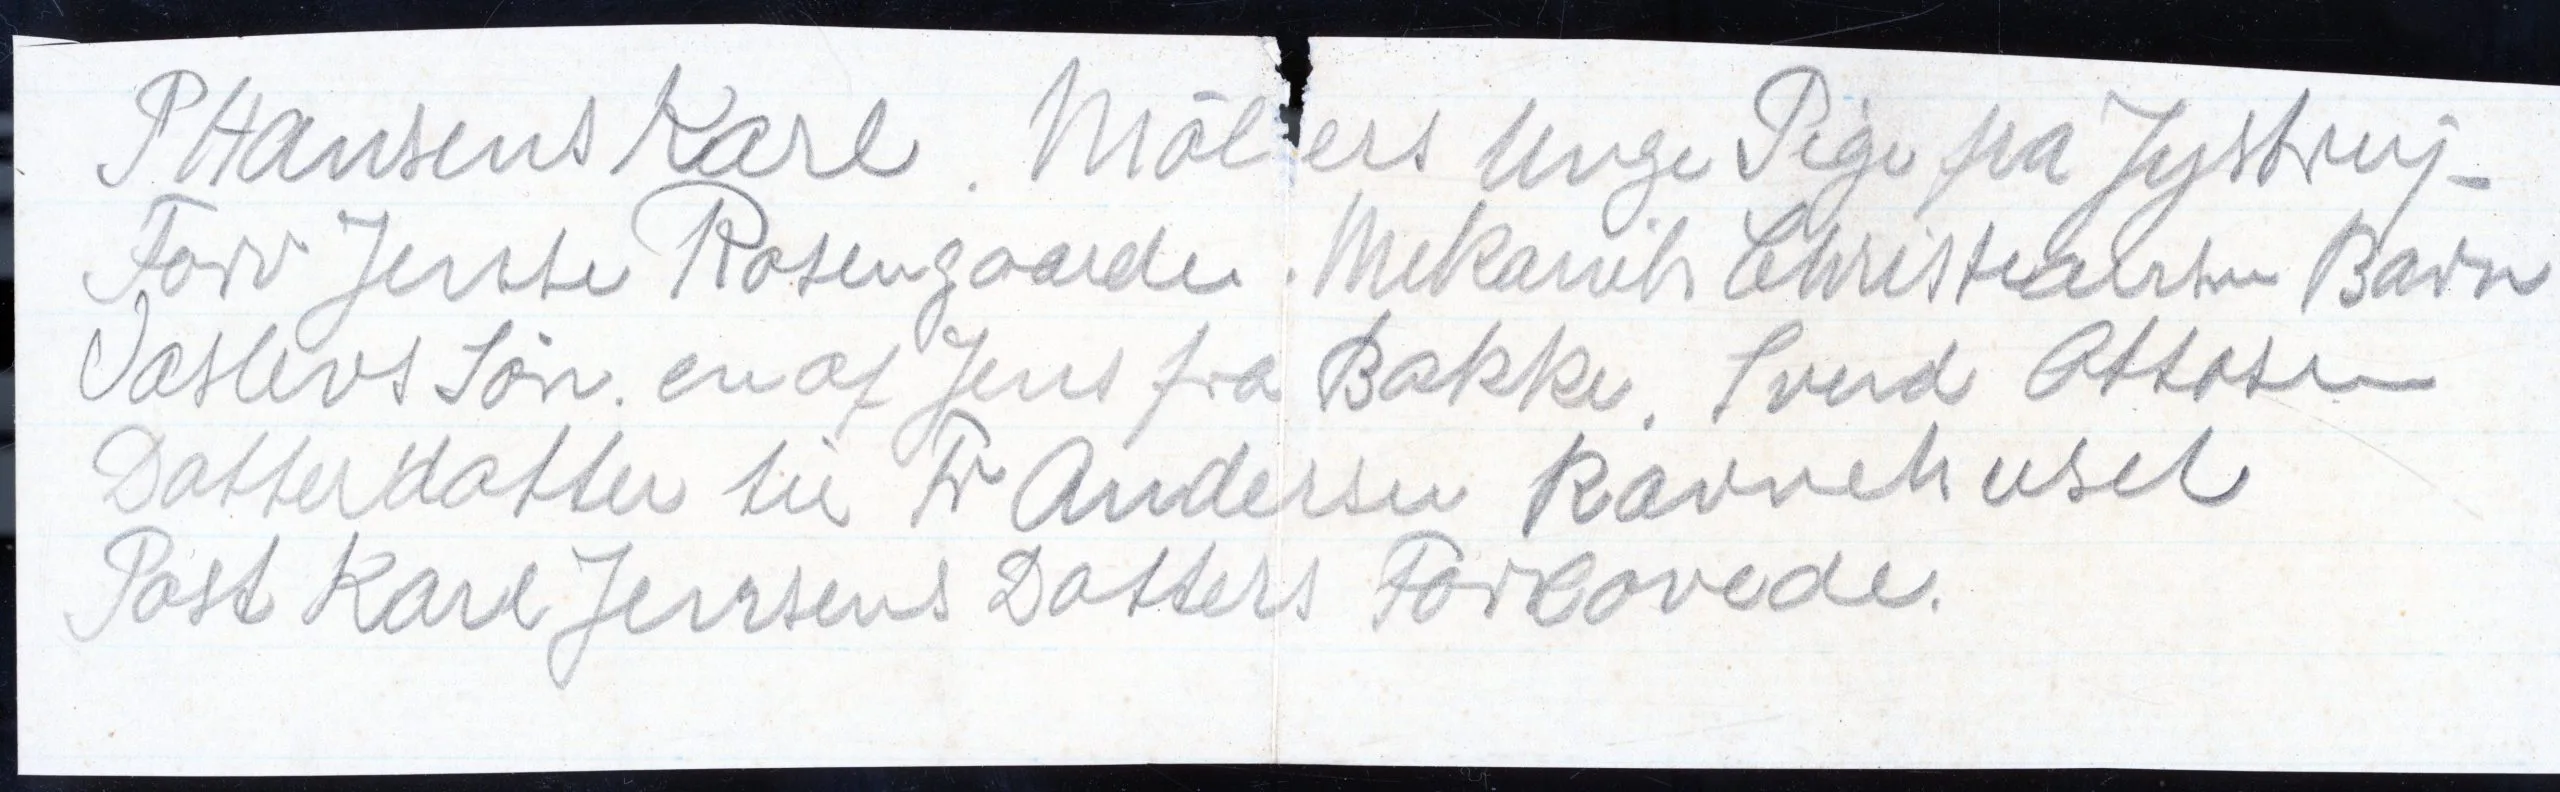 P Hansens Karl. Möllers Unge Pige fra Jystrup-
Forv Jensen Rosengaarden. Mekanikr Christiansen Barn
Vaslevs Søn. en af Jens fra Bakke. Svend Ottosen
Datterdatter til Fr Andersen Ravnehuset
Post Karl Jensens Datters Forlovede.